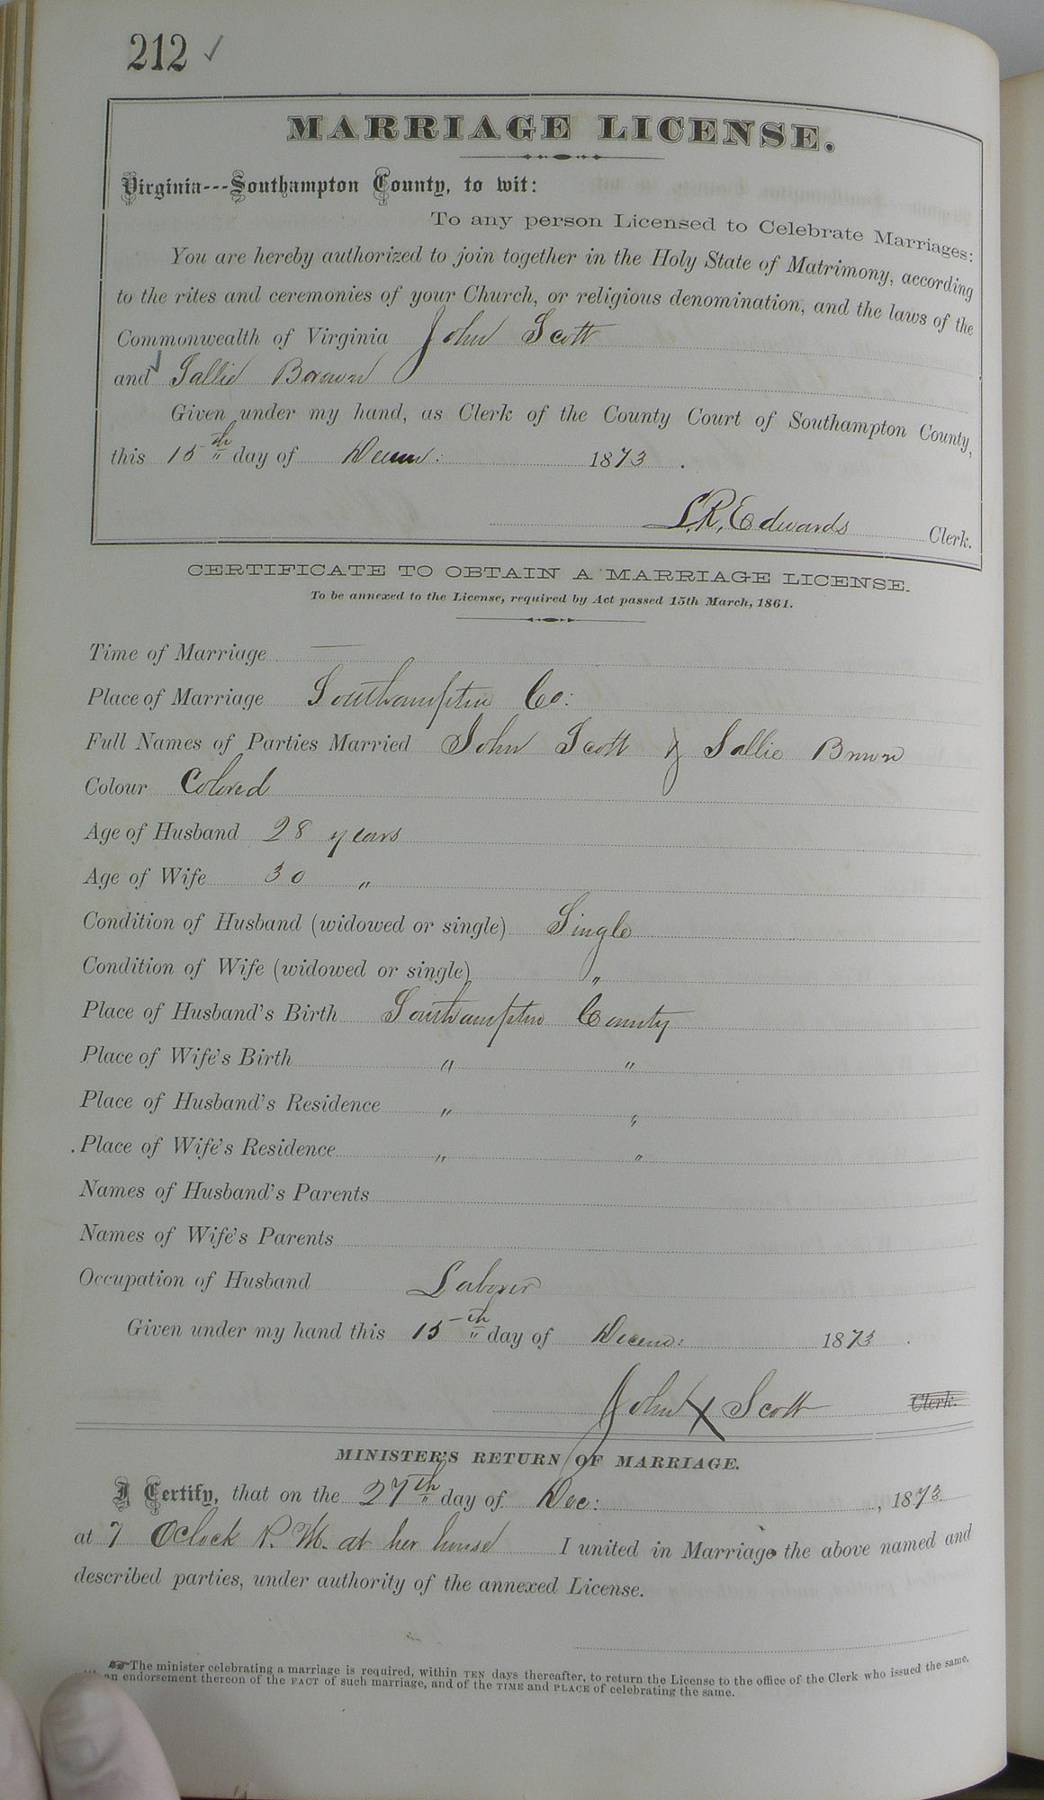 212 ✓
MARRIAGE LICENSE.
Virginia---Southampton County, to wit:
To any person Licensed to Celebrate Marriages:
You are hereby authorized to join together in the Holy State of Matrimony, according
to the rites and ceremonies of your Church, or religious denomination, and the laws of the
Commonwealth of Virginia John Scott
and Sallie Brown
Given under my hand, as Clerk of the County Court of Southampton County,
this 15th day of Decem: 1873.
L.R. Edwards Clerk.
CERTIFICATE TO OBTAIN A MARRIAGE LICENSE.
To be annexed to the License, required by Act passed 15th March, 1861.
Time of Marriage —
Place of Marriage Southampton Co:
Full Names of Parties Married John Scott & Sallie Brown
Colour Colored
Age of Husband 28 years
Age of Wife 30 "
Condition of Husband (widowed or single) Single
Condition of Wife (widowed or single) "
Place of Husband's Birth Southampton County
Place of Wife's Birth " "
Place of Husband's Residence " "
Place of Wife's Residence " "
Names of Husband's Parents
Names of Wife's Parents
Occupation of Husband Laborer
Given under my hand this 15th day of Decem: 1873.
John X Scott Clerk.
MINISTER'S RETURN OF MARRIAGE.
I Certify, that on the 27th day of Dec: , 1873
at 7 Oclock P. M. at her house I united in Marriage the above named and
described parties, under authority of the annexed License.
☞ The minister celebrating a marriage is required, within TEN days thereafter, to return the License to the office of the Clerk who issued the same,
an endorsement thereon of the FACT of such marriage, and of the TIME and PLACE of celebrating the same.